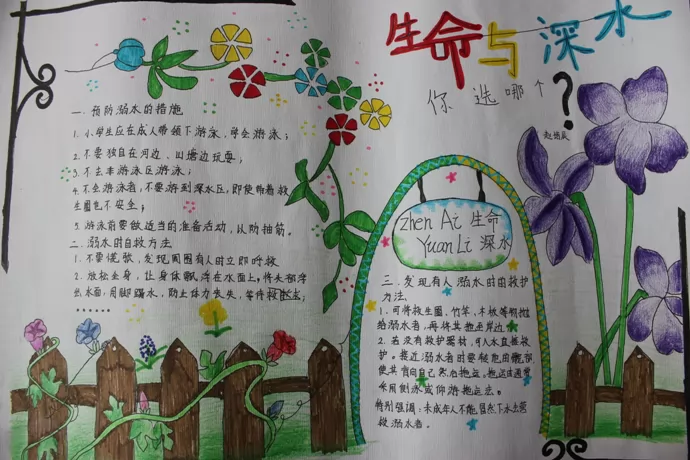 生命与深水
你选哪个?
一.预防溺水的措施
1.小学生应在成人带领下游泳,学会游泳;
2.不要独自在河边、山塘边玩耍;
3.不去非游泳区游泳;
4.不会游泳者,不要游到深水区,即使带着救
生圈也不安全;
5.游泳前要做适当的准备活动,以防抽筋。
二.溺水时的自救方法
1.不要慌张,发现周围有人时立即呼救
2.放松全身,让身体飘浮在水面上,将头部浮
出水面,用脚踢水,防止体力丧失,等待救援;
……
Zhen Ai 生命
Yuan Li 深水
三.发现有人溺水时的救护
方法。
1.可将救生圈、竹竿、木板等物抛
给溺水者,再将其拖至岸边
2.若没有救护器材,可入水直接救
护。接近溺水者时要
使其背向自己然后拖运。拖运时通常
采用侧泳或仰游拖运法。
特别强调:未成年人不能下水去
救溺水者。